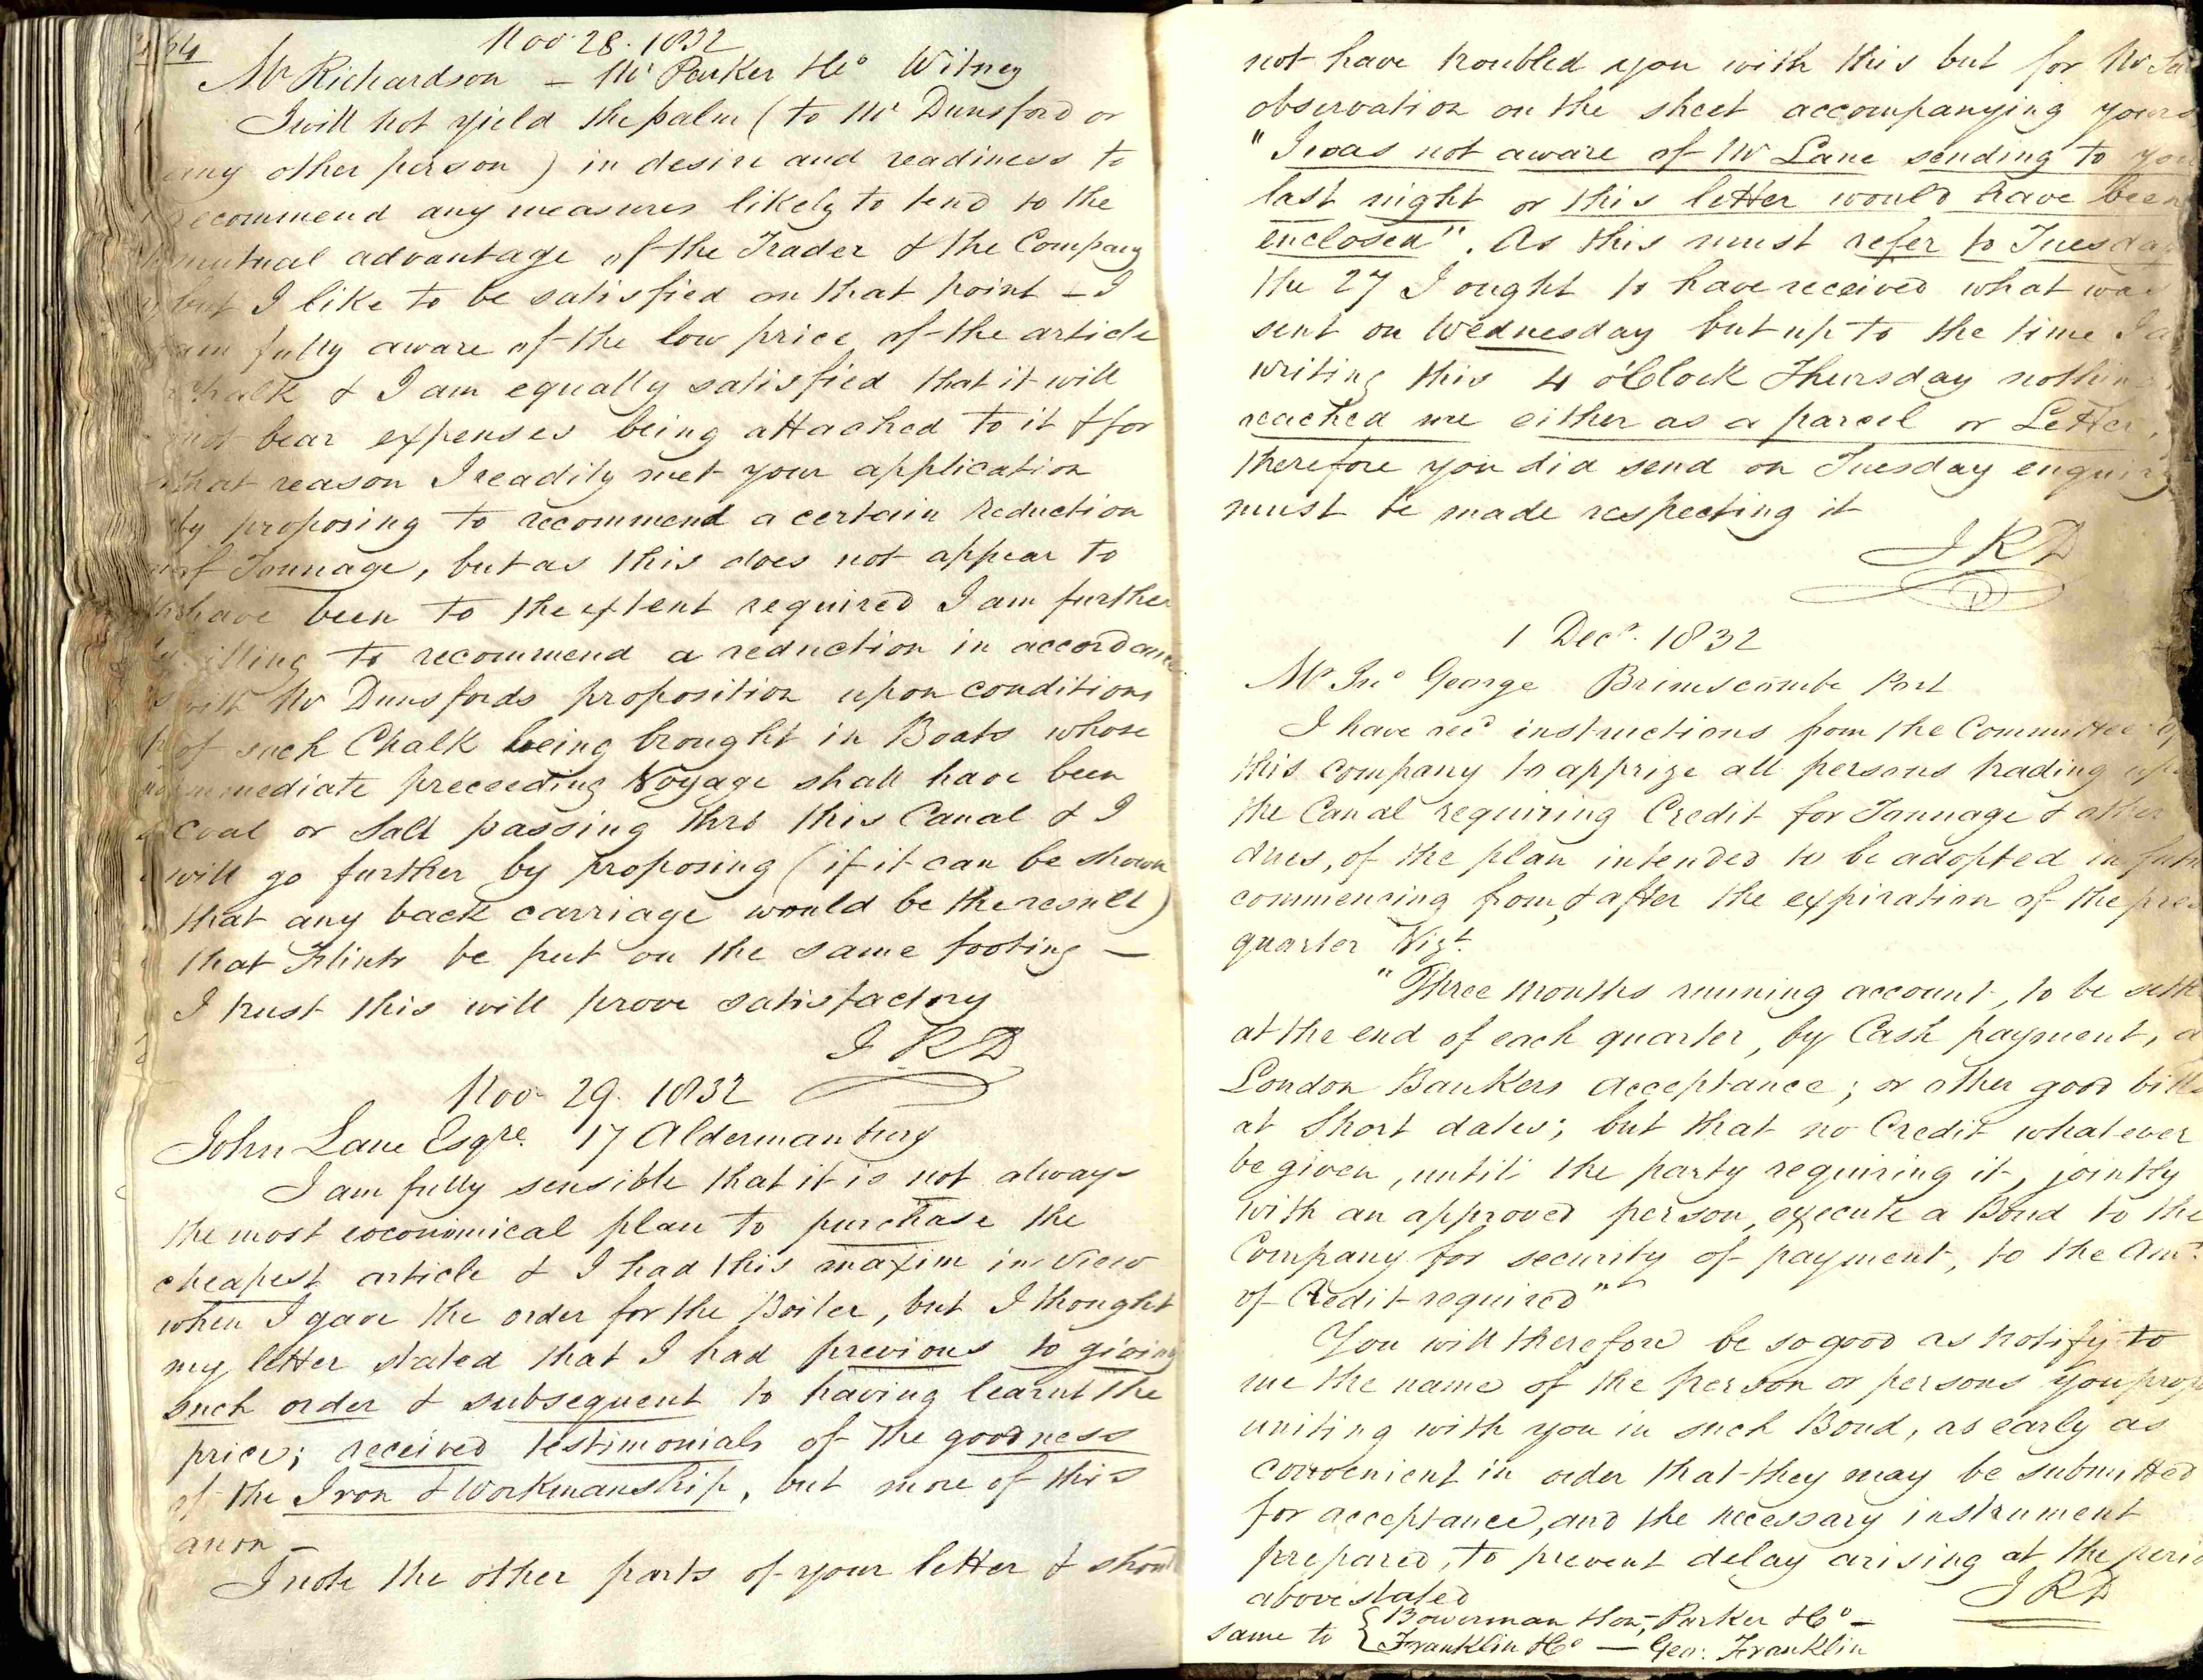 Nov 28. 1832
Mr Richardson — Mr Parker & Co Witney
I will not yield the palm (to Mr Dunsford or
any other person) in desire and readiness to
recommend any measures likely to tend to the
mutual advantage of the Trader & the Company
but I like to be satisfied on that point — I
am fully aware of the low price of the article
Chalk & I am equally satisfied that it will
not bear expenses being attached to it & for
that reason I readily met your application
by proposing to recommend a certain reduction
of Tonnage, but as this does not appear to
have been to the extent required I am further
willing to recommend a reduction in accordance
with Mr Dunsfords proposition upon conditions
of such Chalk being brought in Boats whose
immediate preceeding Voyage shall have been
Coal or Salt passing thro this Canal & I
will go further by proposing (if it can be shown
that any back carriage would be the result)
that Flints be put on the same footing —
I trust this will prove satisfactory
J R D
Nov 29. 1832
John Lane Esqre. 17 Aldermanbury
I am fully sensible that it is not always
the most eoconomical plan to purchase the
cheapest article & I had this maxim in view
when I gave the order for the Boiler, but I thought
my letter stated that I had previous to giving
such order & subsequent to having learnt the
price; received testimonials of the goodness
of the Iron & Workmanship, but more of this
anon —
I note the other parts of your letter &
not have troubled you with this but for Mr
observation on the sheet accompanying yours
"I was not aware of Mr Lane sending to you
last night or this letter would have been
enclosed". As this must refer to Tuesday
the 27 I ought to have received what was
sent on Wednesday but up to the time I
writing this 4 oClock Thursday nothing
reached me either as a parcel or Letter,
therefore you did send on Tuesday enquiry
must be made respecting it
J R D
1 Decr. 1832
Mr Jno George Brimscombe Port
I have recd instructions from the Committee of
this company to apprize all persons trading upon
the Canal requiring Credit for Tonnage & other
dues, of the plan intended to be adopted in
commencing from, & after the expiration of the
quarter Vizt.
"Three months running account, to be
at the end of each quarter, by Cash payment, a
London Bankers Acceptance; or other good bills
at Short dates; but that no Credit whatever
be given, until the party requiring it, jointly
with an approved person, execute a Bond to the
Company for security of payment, to the Amt.
of Credit required"
You will therefore be so good as notify to
me the name of the person or persons you
uniting with you in such Bond, as early as
convenient in order that they may be submitted
for acceptance, and the necessary instrument
prepared, to prevent delay arising at the
above stated
J R D
same to { Bowerman Son, Parker & Co —
Franklin & Co — Geo: Franklin